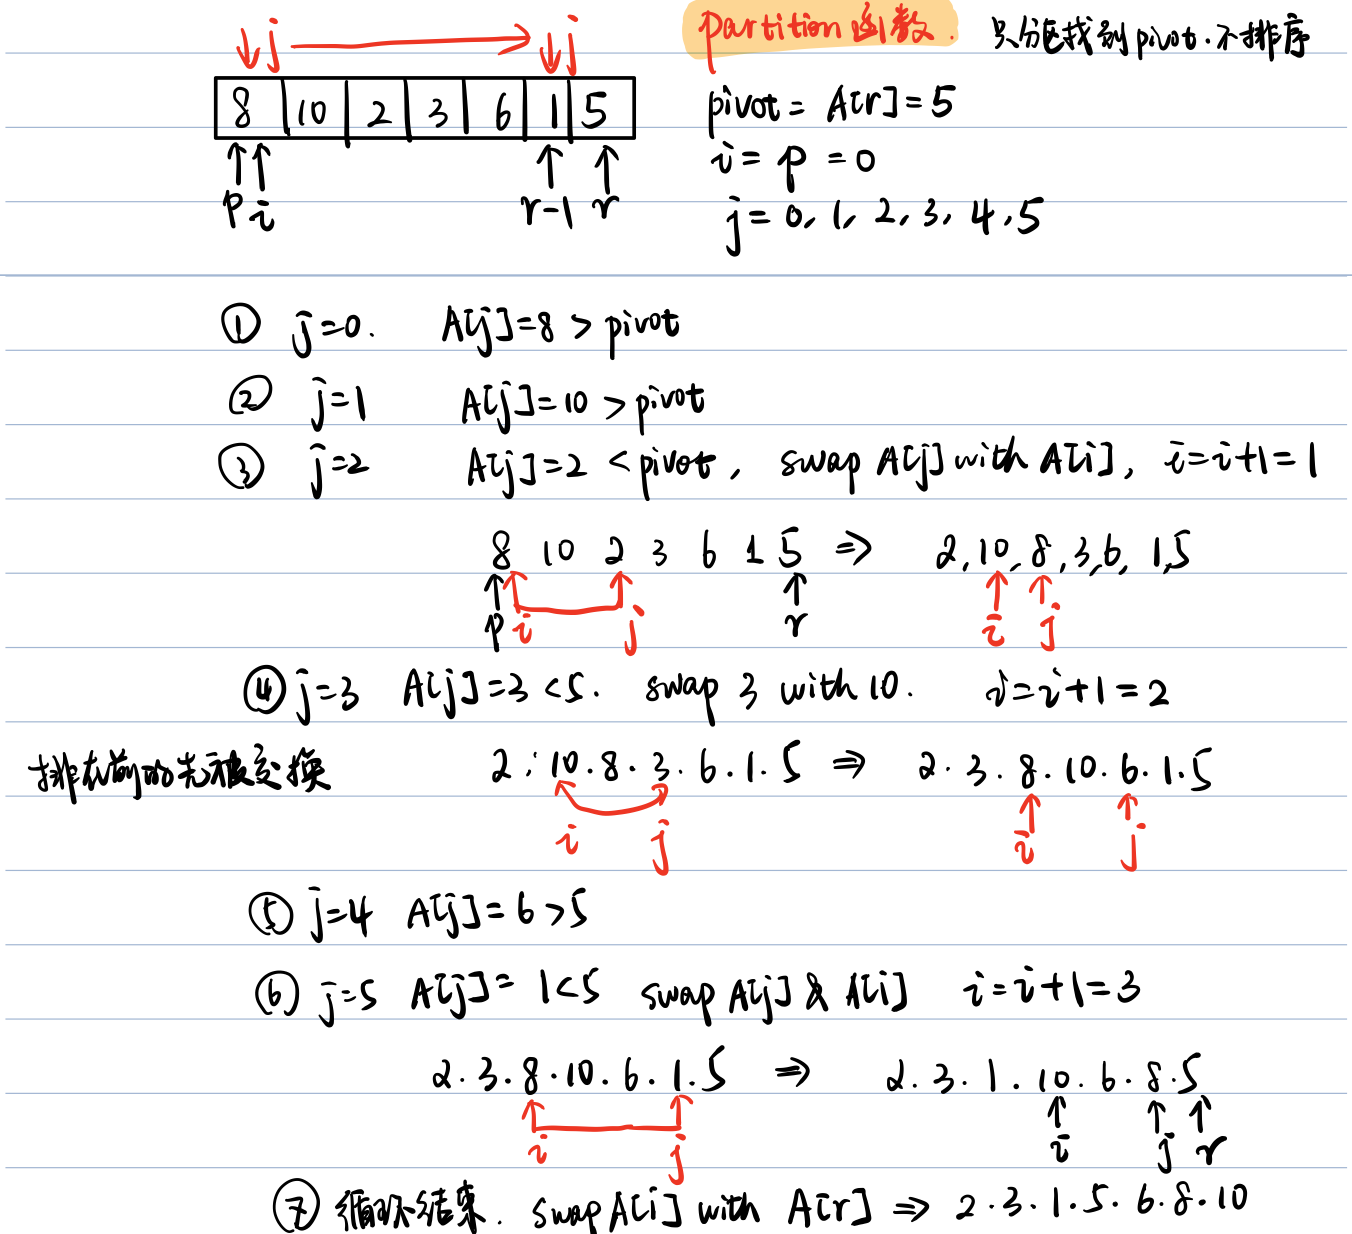 partition 函数. 只分区找到pivot.不排序
j j
8 10 2 3 6 1 5
p i r-1 r
pivot = A[r] = 5
i = p = 0
j = 0, 1, 2, 3, 4, 5
① j=0. A[j]=8 > pivot
② j=1 A[j]=10 > pivot
③ j=2 A[j]=2 < pivot, swap A[j] with A[i], i=i+1=1
8 10 2 3 6 1 5 ⇒ 2,10,8,3,6,1,5
p i j r i j
④ j=3 A[j]=3 <5. swap 3 with 10. i=i+1=2
排在前的先被交换 2.10.8.3.6.1.5 ⇒ 2.3.8.10.6.1.5
i j i j
⑤ j=4 A[j]=6 >5
⑥ j=5 A[j]= 1<5 swap A[j] & A[i] i=i+1=3
2.3.8.10.6.1.5 ⇒ 2.3.1.10.6.8.5
i j i j r
⑦ 循环结束. swap A[i] with A[r] ⇒ 2.3.1.5.6.8.10